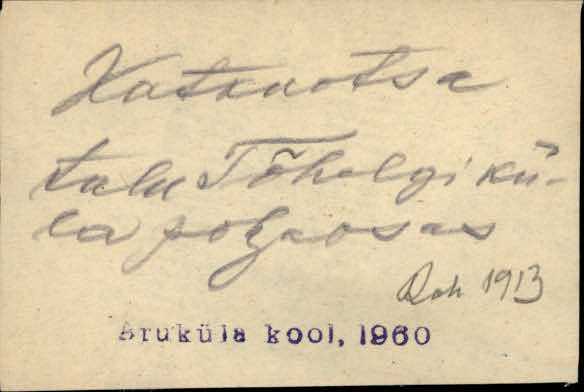 Katanotsa
talu Tõhelgi kü-
la põhjaosas
Rah 1913
Aruküla kool, 1960